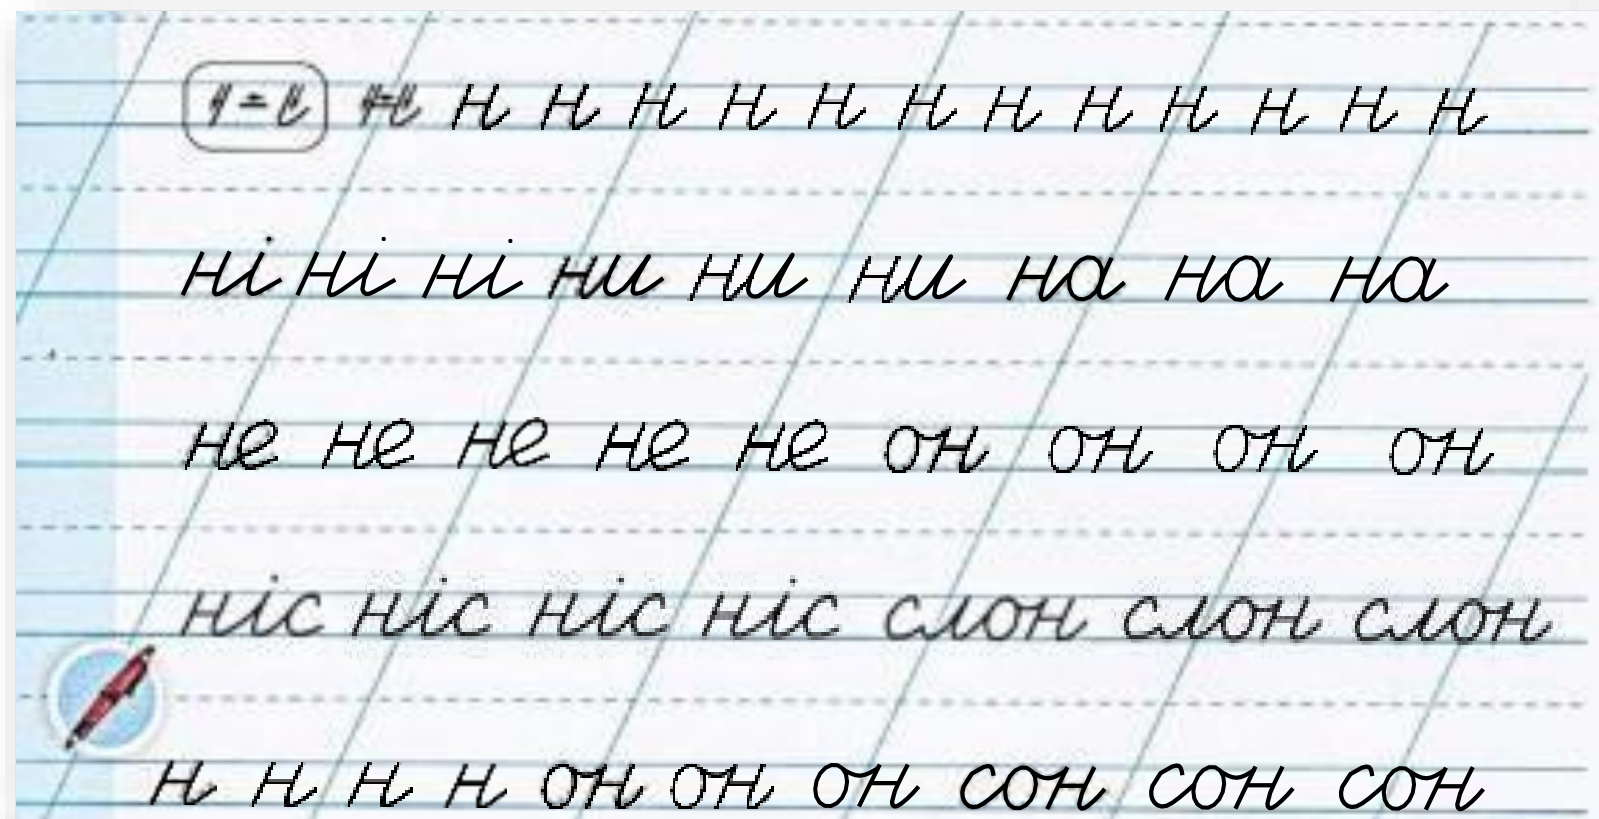 н н н н н н н н н н н н н
ні ні ні ни ни ни на на на
не не не не не он он он он
ніс ніс ніс ніс слон слон слон
н н н н он он он сон сон сон